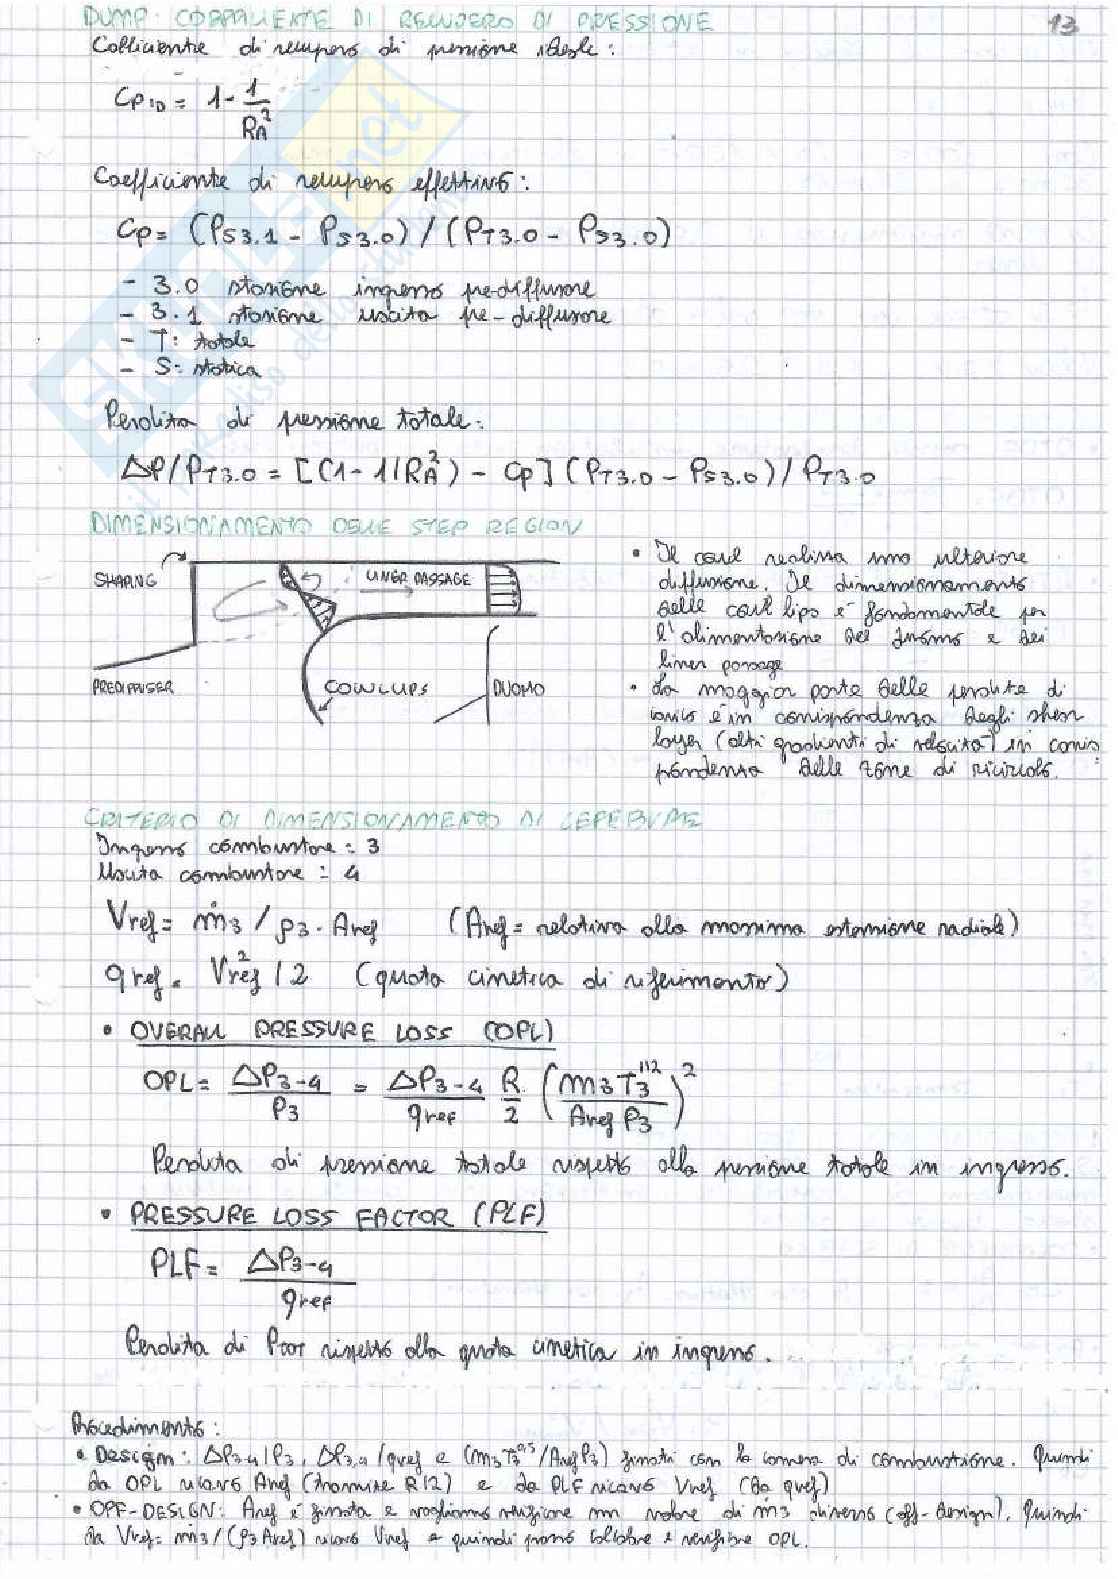 DUMP: COEFFICIENTE DI RECUPERO DI PRESSIONE
13
Coefficiente di recupero di pressione ideale:
Cp ID = 1 - 1/RA²
Coefficiente di recupero effettivo:
Cp = (PS3.1 - PS3.0) / (PT3.0 - PS3.0)
- 3.0 stazione ingresso pre-diffusore
- 3.1 stazione uscita pre-diffusore
- T: totale
- S: statica
Perdita di pressione totale:
ΔP/PT3.0 = [(1 - 1/RA²) - Cp] (PT3.0 - PS3.0) / PT3.0
DIMENSIONAMENTO DELLE STEP REGION
SHAPING
LINER PASSAGE
PREDIFFUSER
COWL LIPS
DUOMO
• Il cowl realizza una ulteriore
diffusione. Il dimensionamento
delle cowl lips è fondamentale per
l'alimentazione del duomo e dei
liner passage
• La maggior parte delle perdite di
carico è in corrispondenza degli shear
layer (alti gradienti di velocità) in corris
pondenza delle zone di ricircolo.
CRITERIO DI DIMENSIONAMENTO DI LEFEBVRE
Ingresso combustore = 3
Uscita combustore = 4
Vref = ṁ3 / ρ3 · Aref (Aref = relativa alla massima estensione radiale)
qref = Vref² / 2 (quota cinetica di riferimento)
• OVERALL PRESSURE LOSS (OPL)
OPL = ΔP3-4 / P3 = ΔP3-4 / qref R/2 (m3 T3^1/2 / Aref P3)²
Perdita di pressione totale rispetto alla pressione totale in ingresso.
• PRESSURE LOSS FACTOR (PLF)
PLF = ΔP3-4 / qref
Perdita di PTOT rispetto alla quota cinetica in ingresso.
Procedimento:
• Design: ΔP3-4/P3, ΔP3-4/qref e (m3 T3^0,5/Aref P3) fissati con la camera di combustione. Quindi
da OPL ricavo Aref (tramite R/2) e da PLF ricavo Vref (da qref)
• OFF-DESIGN: Aref è fissata e vogliamo verificare un valore di ṁ3 diverso (off-design). Quindi
da Vref = m3/(ρ3 Aref) ricavo Vref e quindi posso calcolare e verificare OPL.